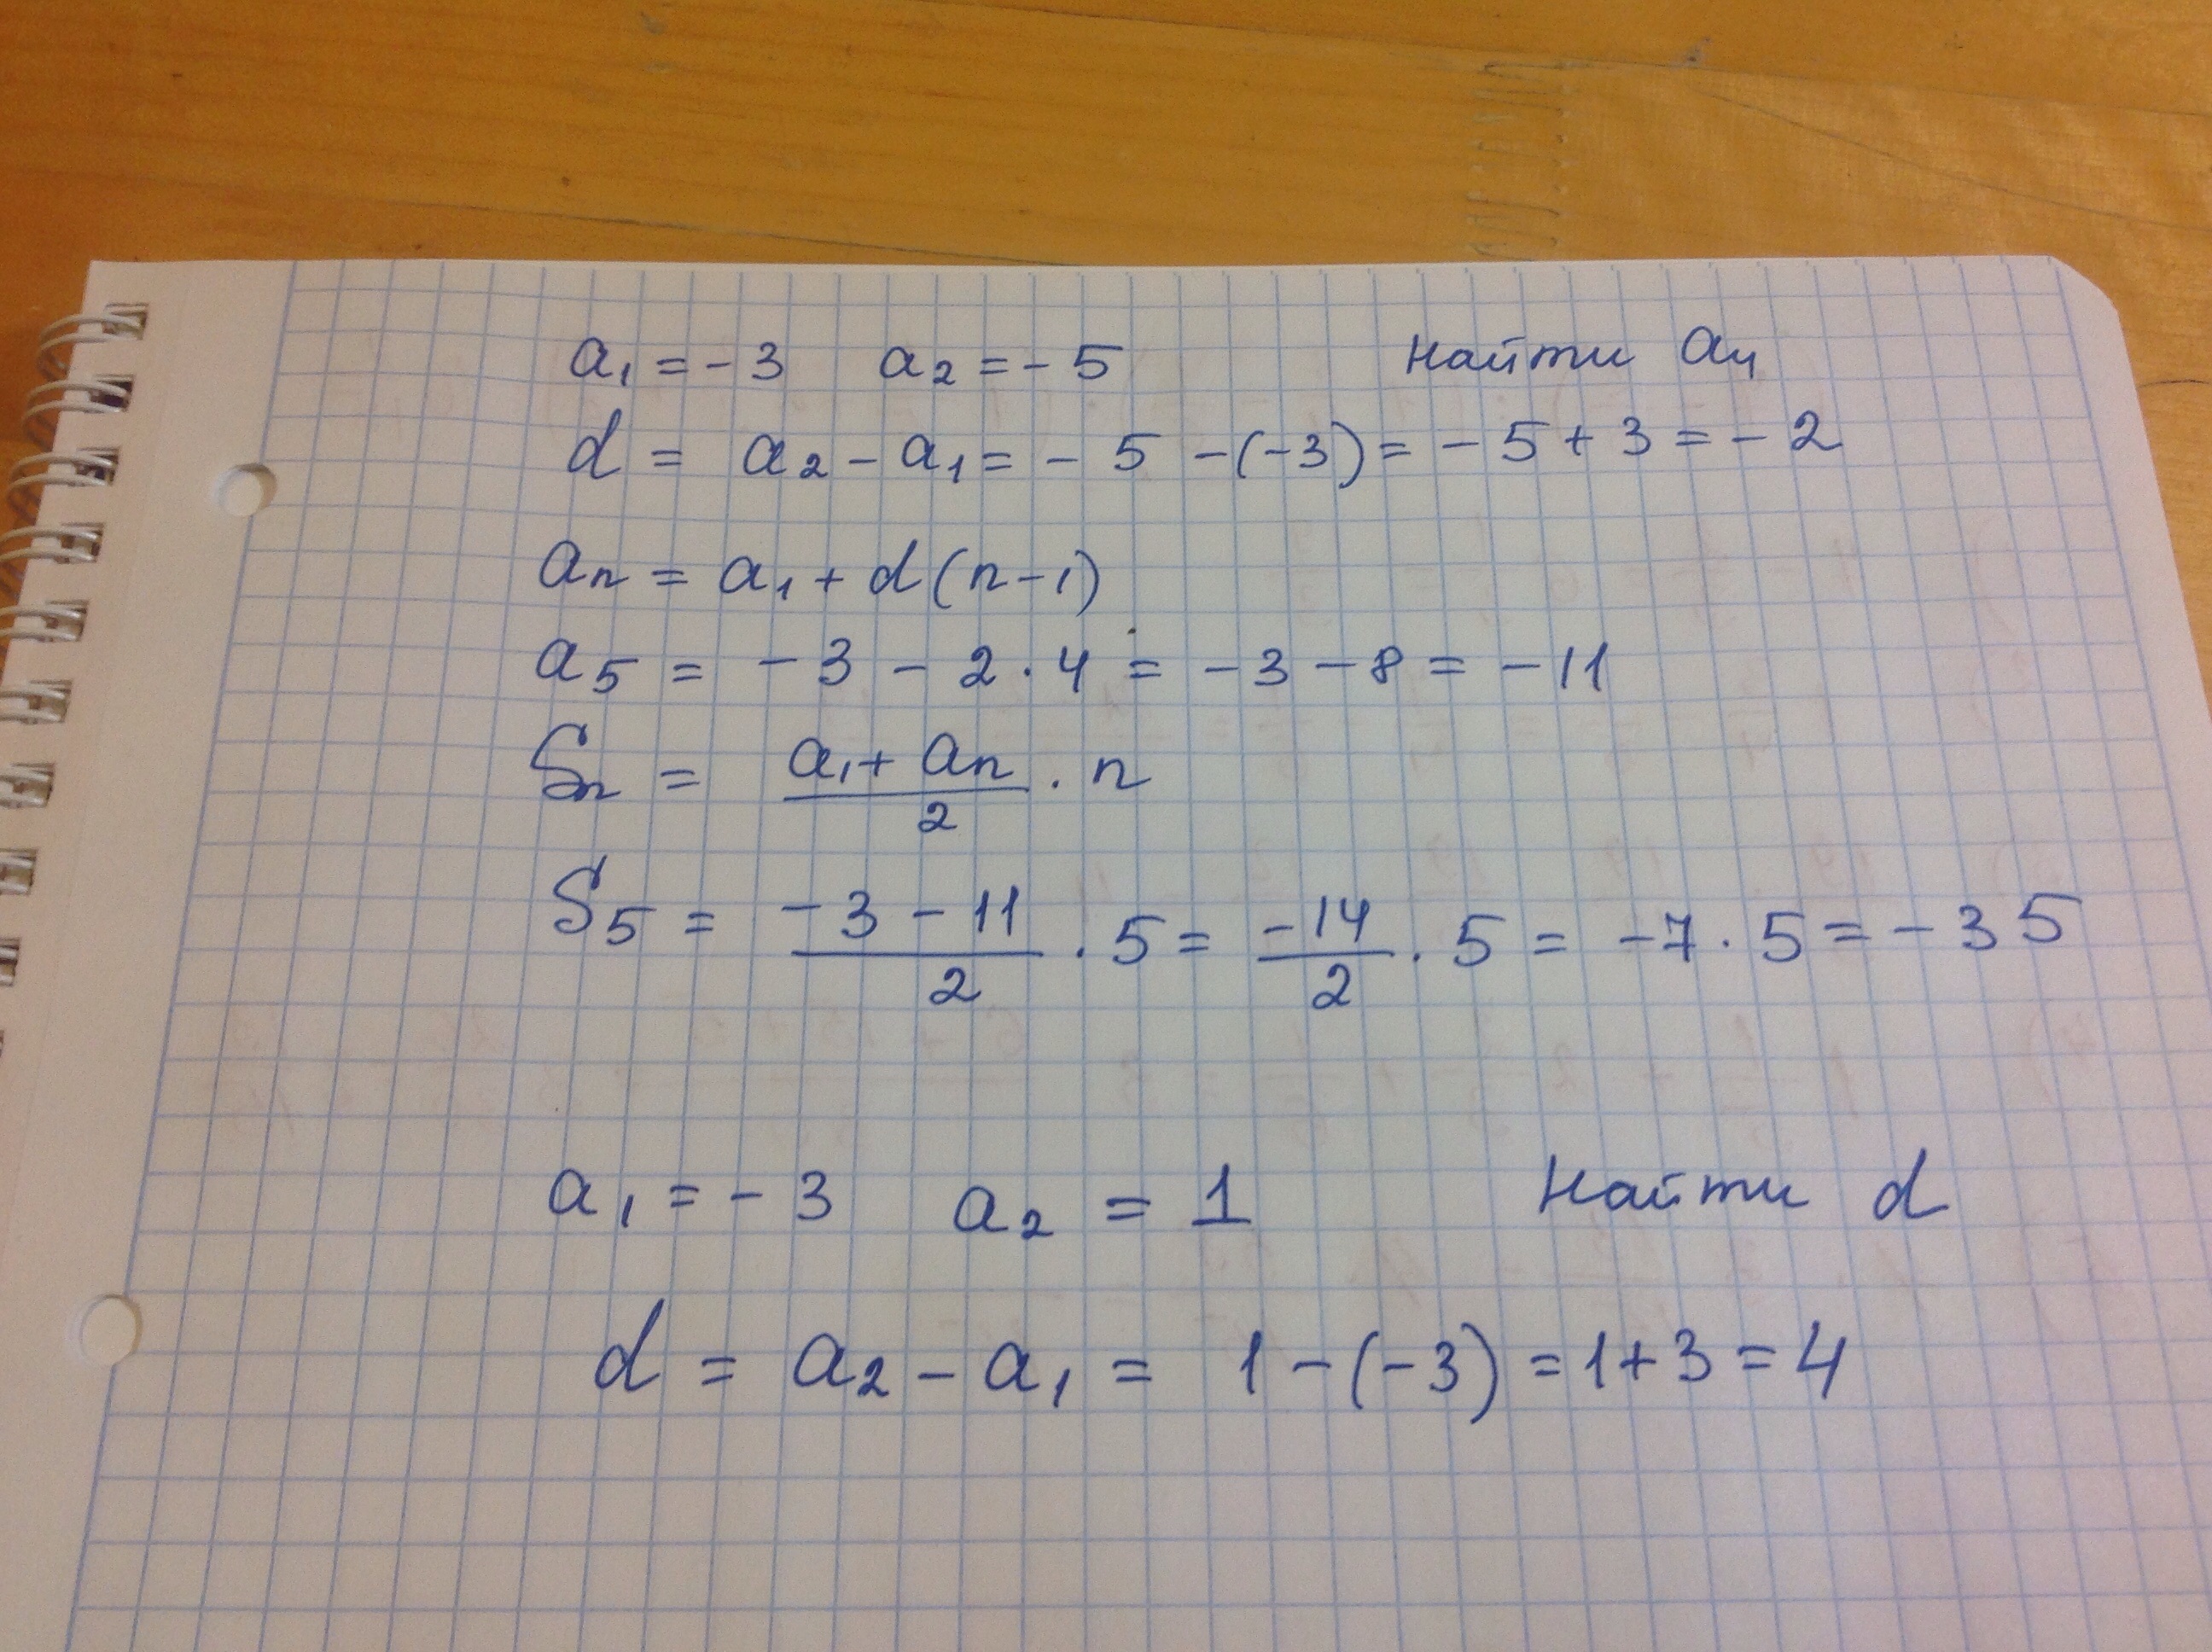 a₁ = - 3 a₂ = - 5 Найти a₄
d = a₂ - a₁ = - 5 - (-3) = - 5 + 3 = - 2
aₙ = a₁ + d (n - 1)
a₅ = - 3 - 2 · 4 = - 3 - 8 = - 11
Sₙ = (a₁ + aₙ)/2 · n
S₅ = (- 3 - 11)/2 · 5 = (- 14)/2 · 5 = - 7 · 5 = - 35
a₁ = - 3 a₂ = 1 Найти d
d = a₂ - a₁ = 1 - (- 3) = 1 + 3 = 4